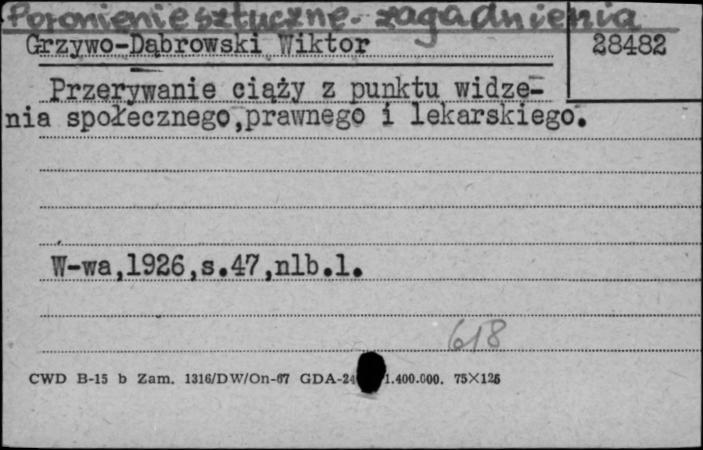 Poronienie sztuczne - zagadnienia
Grzywo-Dąbrowski Wiktor
28482
Przerywanie ciąży z punktu widze-
nia społecznego,prawnego i lekarskiego.
W-wa,1926,s.47,nlb.1.
618
CWD B-15 b Zam. 1316/DW/On-67 GDA-24 1.400.000. 75×125